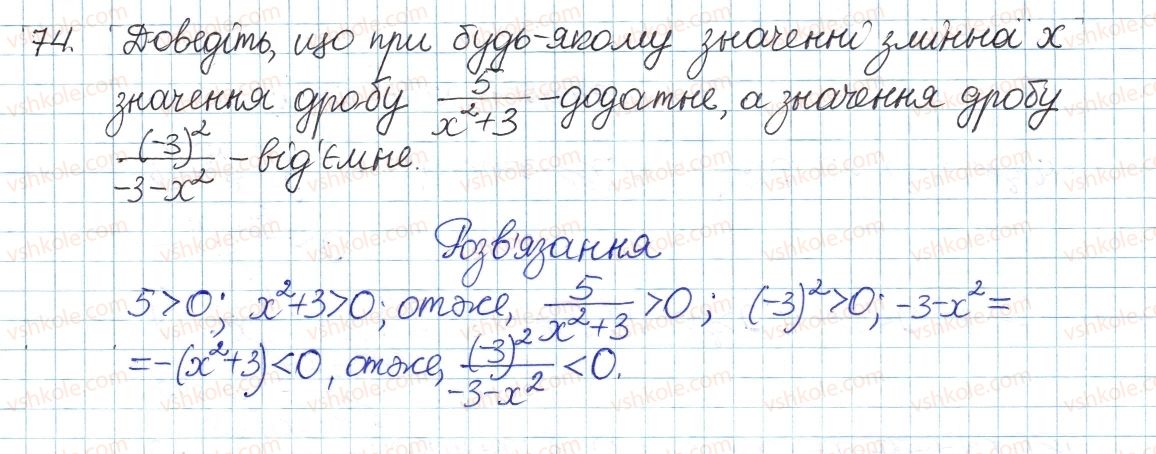 74. Доведіть, що при будь-якому значенні змінної x
значення дробу 5/(x²+3) - додатне, а значення дробу
(-3)²/(-3-x²) - від'ємне.
Розв'язання
5>0; x²+3>0; отже, 5/(x²+3) >0; (-3)²>0; -3-x²=
=-(x²+3)<0, отже, (-3)²/(-3-x²) <0.